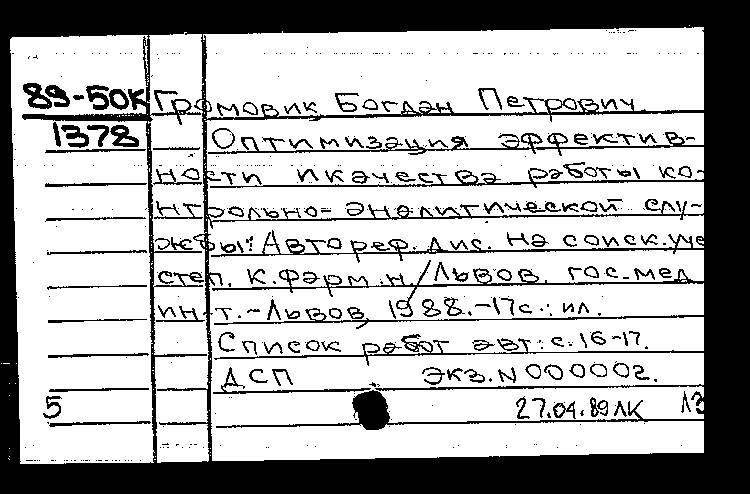 89-50К Громовик Богдан Петрович.
1378 Оптимизация эффектив-
ности и качества работы ко-
нтрольно-аналитической слу-
жбы: Автореф. дис. на соиск. уче
степ. к. фарм. н. / Львов. гос. мед
ин-т. - Львов, 1988. - 17с.: ил.
Список работ авт.: с. 16-17.
ДСП экз. N 000002.
5 27.04.89 ЛК ЛЗ